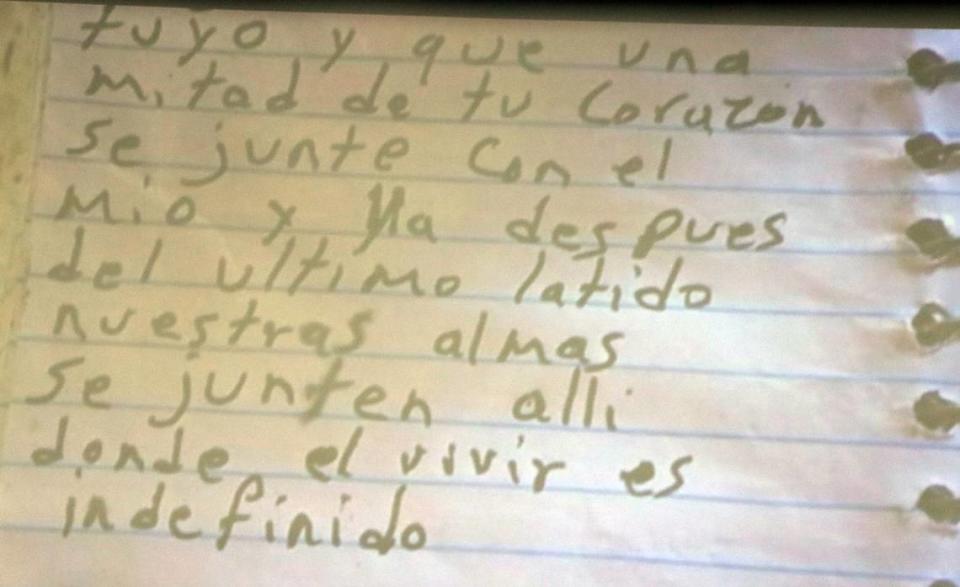 tuyo y que una
mitad de tu Corazon
se junte con el
mio y ya despues
del ultimo latido
nuestras almas
se junten alli
donde el vivir es
indefinido